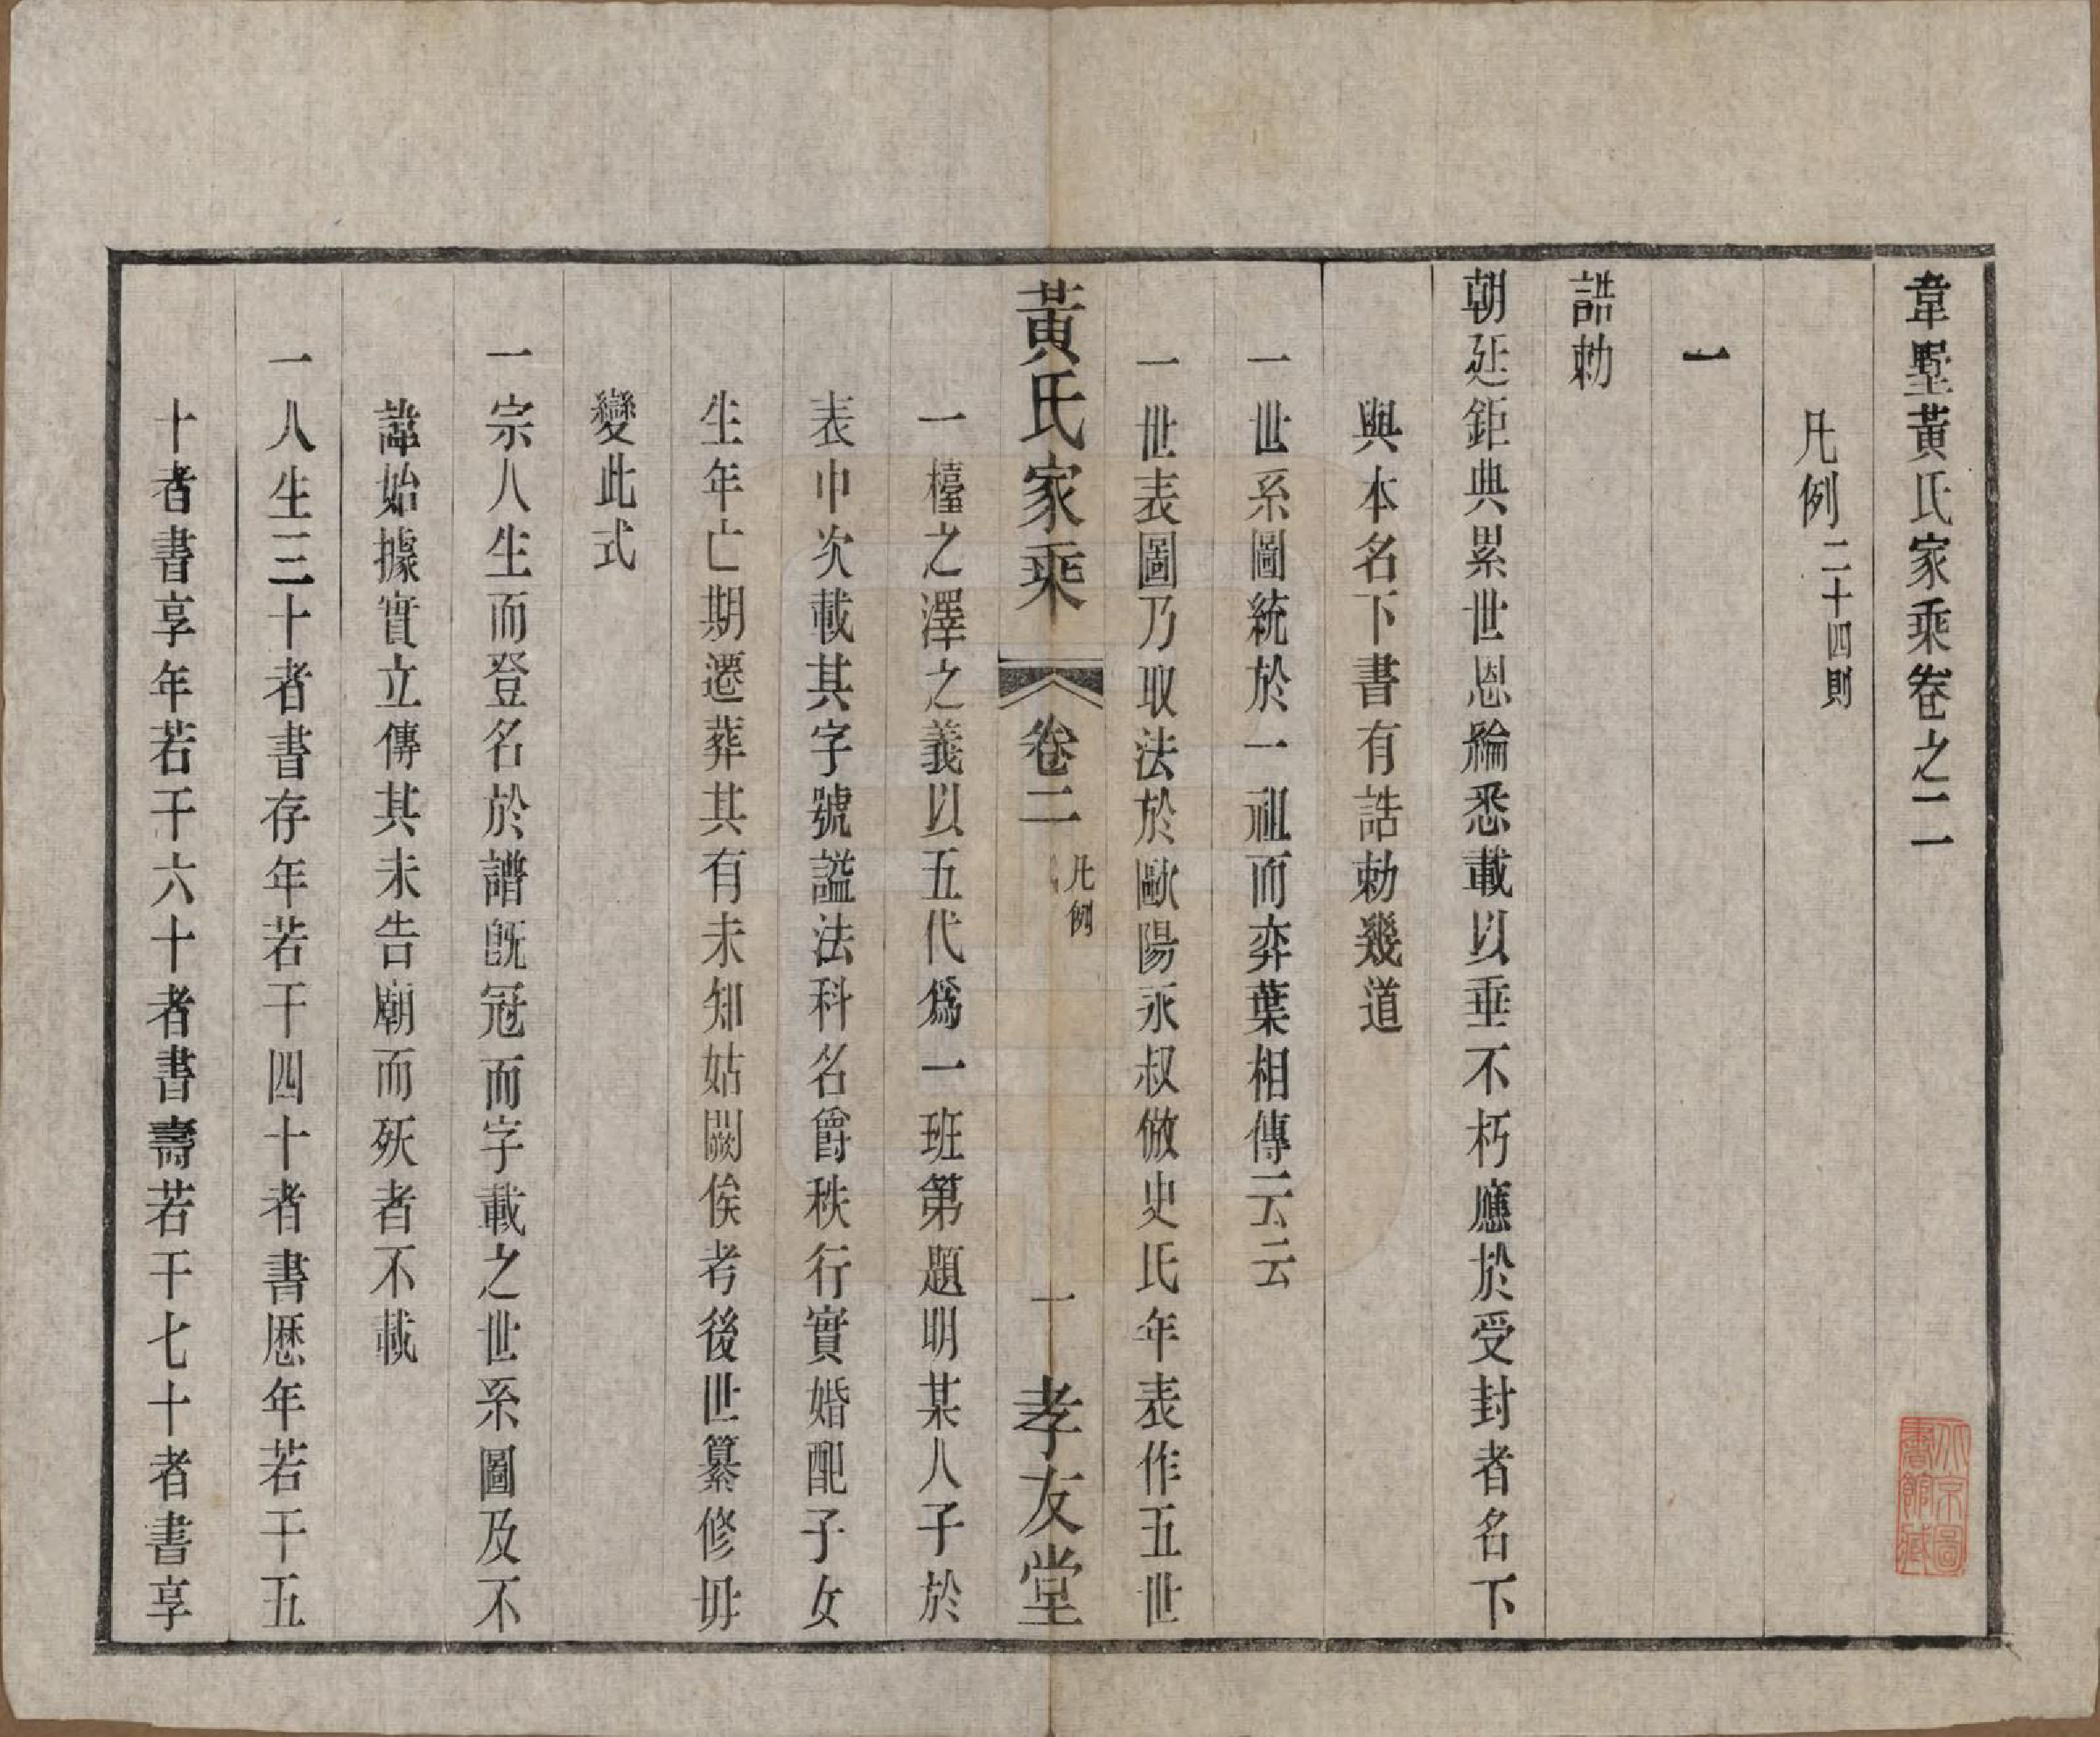 韋墅黃氏家乘卷之二
凡例二十四則
一
誥勅
朝廷鉅典累世恩綸悉載以垂不朽應於受封者名下
與本名下書有誥勅幾道
一世系圖統於一祖而弈葉相傳云云
一世表圖乃取法於歐陽永叔倣史氏年表作五世
黃氏家乘 卷二 凡例 一 孝友堂
一檯之澤之義以五代爲一班第題明某人子於
表中次載其字號諡法科名爵秩行實婚配子女
生年亡期遷葬其有未知姑闕俟考後世纂修毋
變此式
一宗人生而登名於譜既冠而字載之世系圖及不
諱始據實立傳其未告廟而殀者不載
一人生三十者書存年若干四十者書歷年若干五
十者書享年若干六十者書壽若干七十者書享
北京圖
書館藏